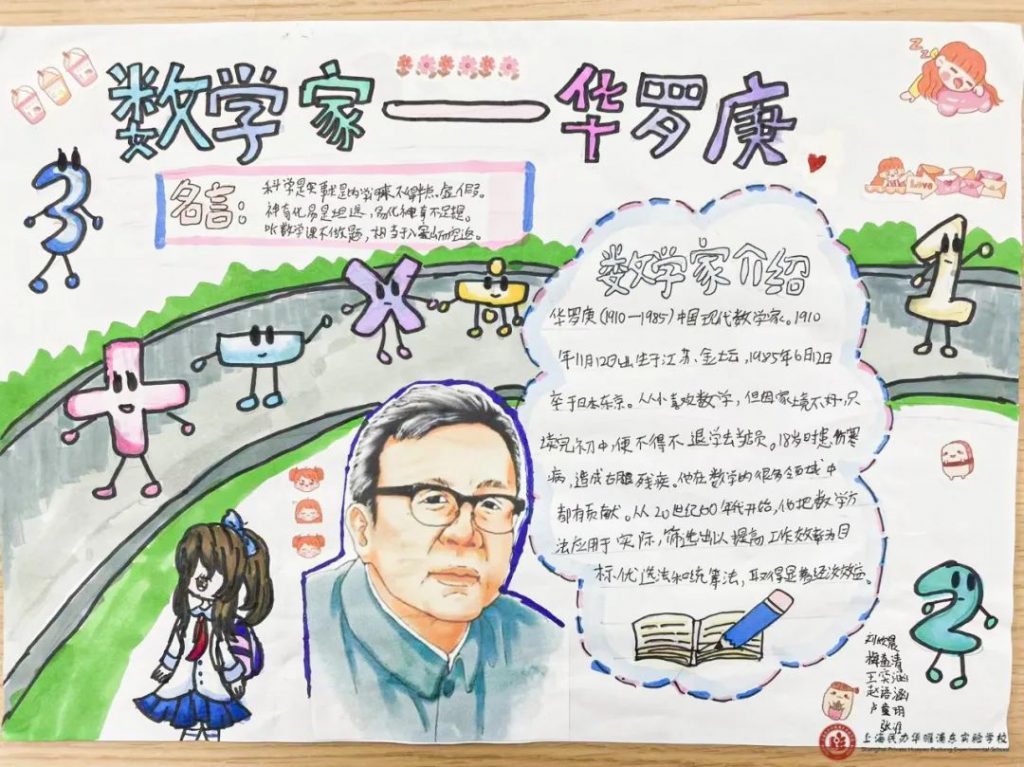 数学家——华罗庚
名言:
科学是实事求是的学问,来不得半点虚假。
神奇化易是坦途,易化神奇不足提。
听数学课不做题,相当于入宝山而空返。
数学家介绍
华罗庚(1910—1985)中国现代数学家。1910
年11月12日出生于江苏金坛,1985年6月12日
卒于日本东京。从小喜欢数学,但因家境不好,只
读完初中,便不得不退学去当店员。18岁时患伤寒
病,造成右腿残疾。他在数学的很多领域中
都有贡献。从20世纪60年代开始,他把数学方
法应用于实际,筛选出以提高工作效率为目
标优选法和统筹法,取得显著经济效益。
Love
王奕涵
赵语涵
上海民办华曜浦东实验学校
Shanghai Private Huayao Pudong Experimental School